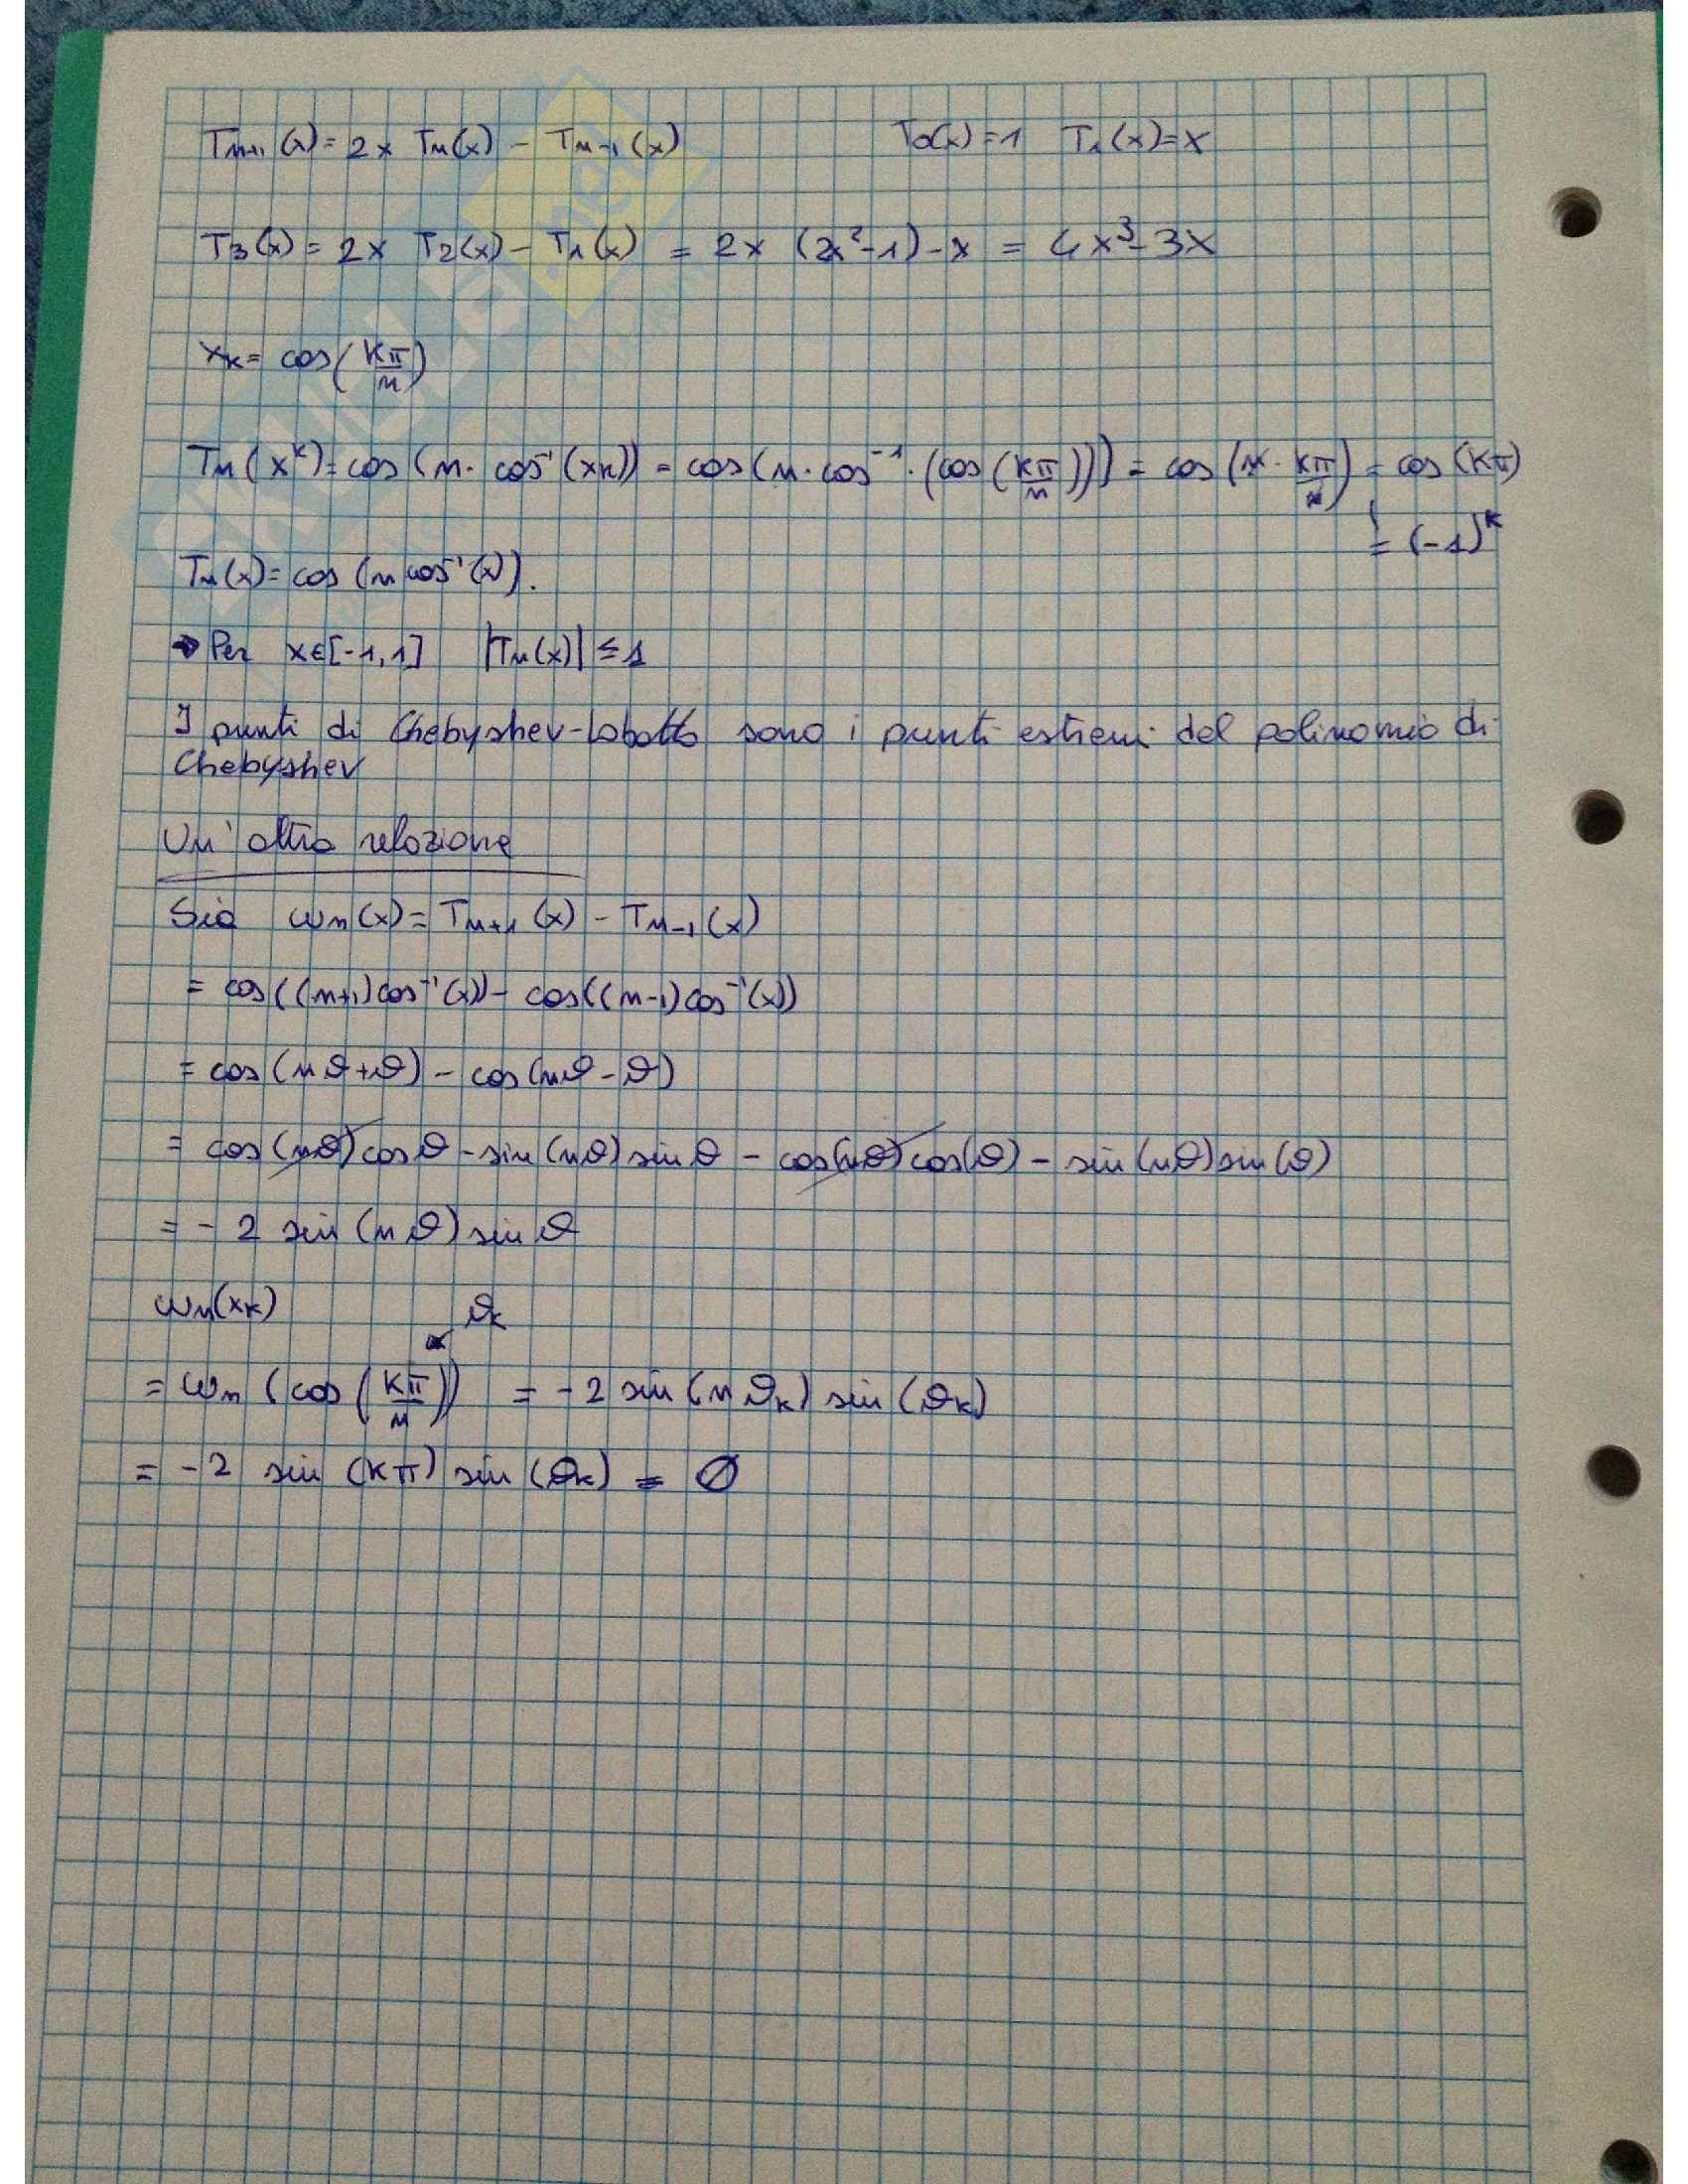 Tn+1(x) = 2x Tn(x) - Tn-1(x) T0(x)=1 T1(x)=x
T3(x) = 2x T2(x) - T1(x) = 2x (2x²-1) - x = 4x³-3x
xk = cos(kπ/n)
Tn(x^k) = cos(n· cos⁻¹(xk)) = cos(n·cos⁻¹·(cos(kπ/n))) = cos(n· kπ/n) = cos(kπ)
= (-1)^k
Tn(x) = cos(n cos⁻¹(x)).
→ Per x∈[-1,1] |Tn(x)| ≤ 1
I punti di Chebyshev-Lobatto sono i punti estremi del polinomio di
Chebyshev
Un'altra relazione
Sia ωn(x) = Tn+1(x) - Tn-1(x)
= cos((n+1)cos⁻¹(x)) - cos((n-1)cos⁻¹(x))
= cos(nϑ+ϑ) - cos(nϑ-ϑ)
= cos(nϑ)cosϑ - sin(nϑ)sinϑ - cos(nϑ)cos(ϑ) - sin(nϑ)sin(ϑ)
= -2 sin(nϑ) sinϑ
ωn(xk) ϑk
= ωn(cos(kπ/n)) = -2 sin(nϑk) sin(ϑk)
= -2 sin(kπ) sin(ϑk) = 0